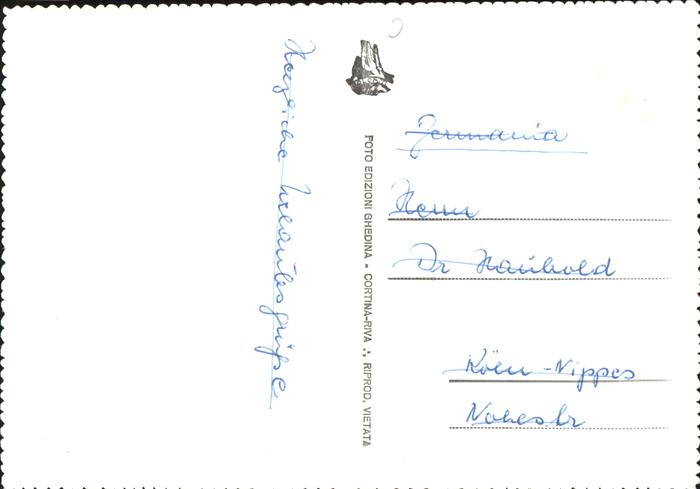 Herzliche Urlaubsgrüße
FOTO EDIZIONI GHEDINA - CORTINA-RIVA ∴ RIPROD. VIETATA
Germania
Herrn
Dr Haubold
Köln-Nippes